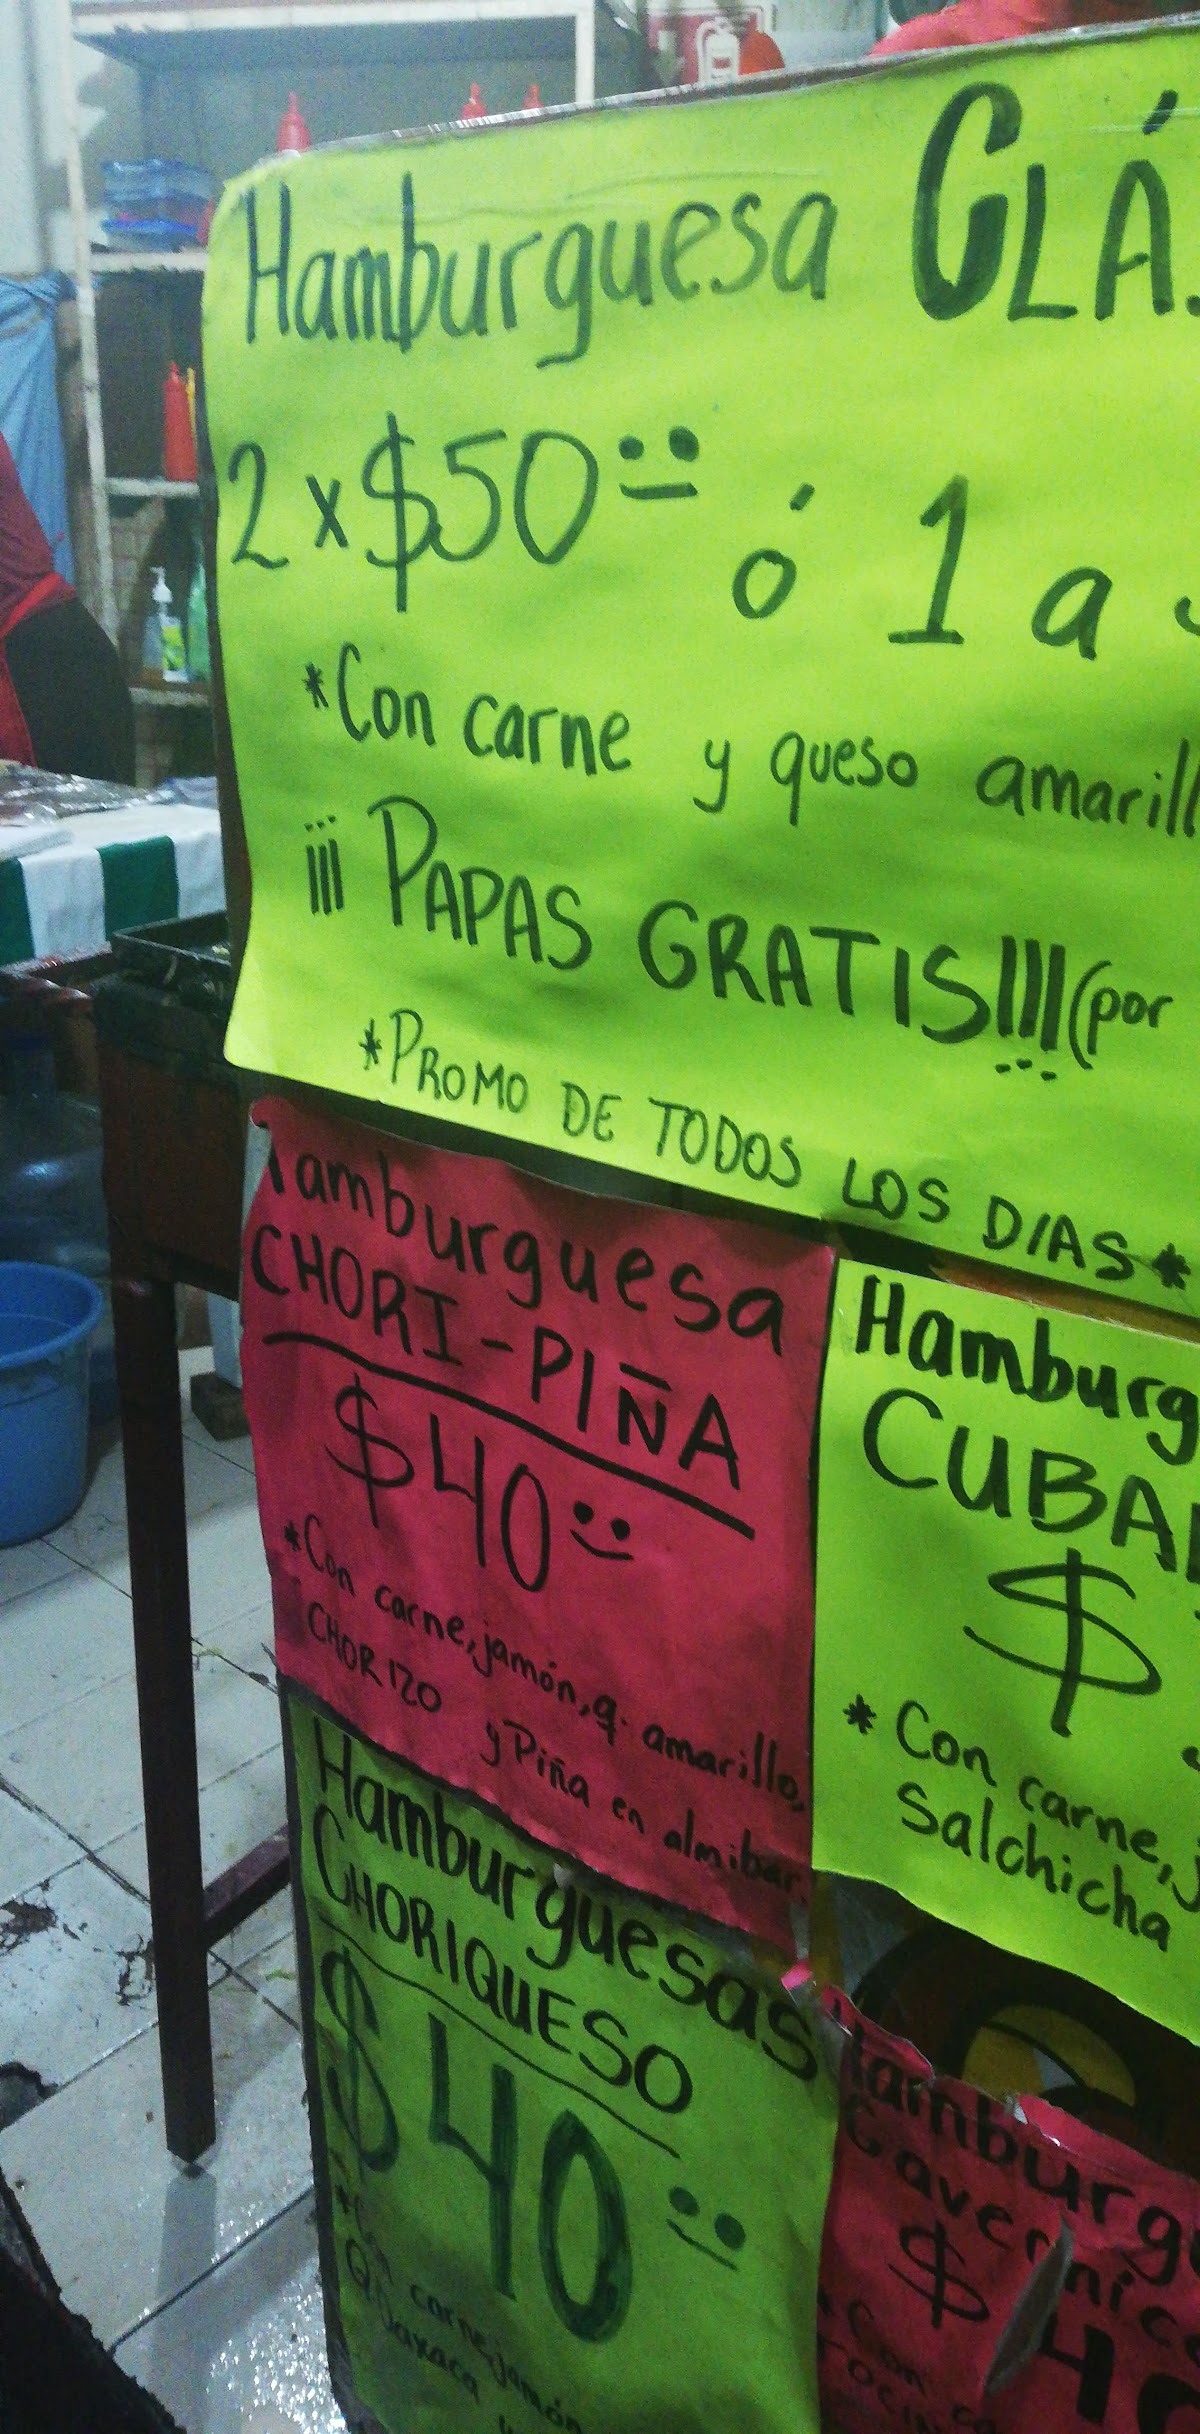 Hamburguesa CLÁ
2 x $50 ó 1 a
*Con carne y queso amarill
¡¡¡ PAPAS GRATIS!!! (por
*PROMO DE TODOS LOS DIAS*
Hamburguesa
CHORI-PIÑA
$40
*Con carne, jamón, q. amarillo,
CHORIZO y Piña en almibar.
Hamburg
CUBA
$
*Con carne, j
Salchicha
Hamburguesas
CHORIQUESO
$40
*Con carne, jamón
Q. Oaxaca
Hamburg
Caverníc
$40
*Con ca
TOCIN